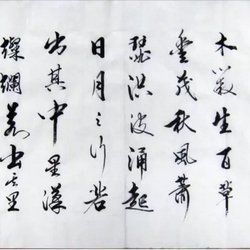 木叢生百草
豐茂秋風蕭
瑟洪波涌起
日月之行若
出其中星漢
燦爛若出其里